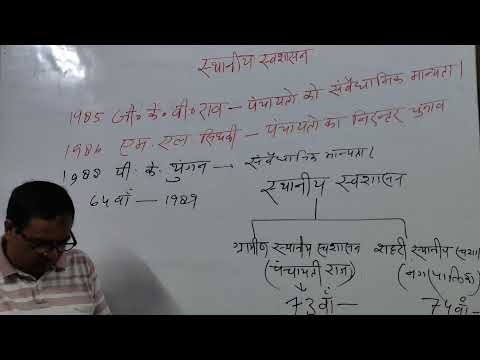 स्थानीय स्वशासन
1985 जी० के० वी० राव – पंचायतो को संवैधानिक मान्यता।
1986 एम. एल सिंघवी – पंचायतो का निरन्तर चुनाव
1988 पी. के. थुंगन → संवैधानिक मान्यता।
64 वाँ — 1989
स्थानीय स्वशासन
ग्रामीण स्थानीय स्वशासन शहरी स्थानीय
(पंचायती राज)
73वाँ — 74वाँ —